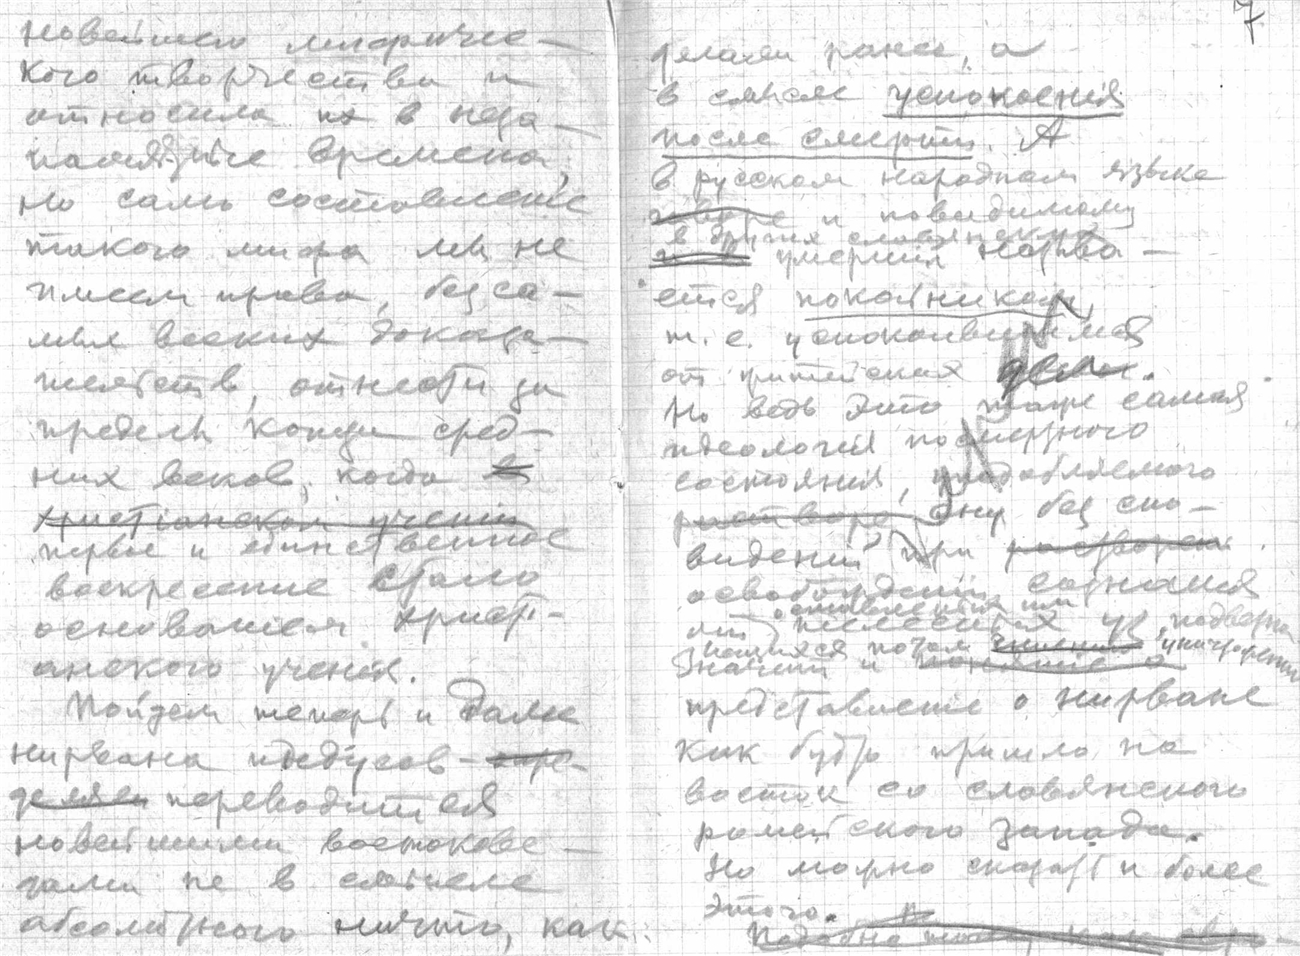 новейшего мифичес-
кого творчества и
относила их в неза-
памятные времена,
но само составление
такого мифа мы не
имеем права, без са-
мых веских доказа-
тельств, отнести за
пределы конца сред-
них веков, когда в
христіанском учении
первое и единственное
воскресение стало
основанием христі-
анского учения.
Пойдем теперь и далее
нирвана индусов -
переводится
новейшими востокове-
дами не в смысле
абсолютного ничто, как
7
делали ранее, а
в смысле успокоения
после смерти. А
в русском народном языке
и повидимому
в других славянских
умерший называ-
ется покойником,
т. е. успокоившимся
от житейских дел.
Но ведь это таже самая
идеология посмертного
состояния, уподобляемого
сну без сно-
видений при
освобождении сознания
от телесных уз,
значит и
представление о нирване
как будто пришло на
восток со славянского
ромейского запада.
Но можно сказать и более
этого.